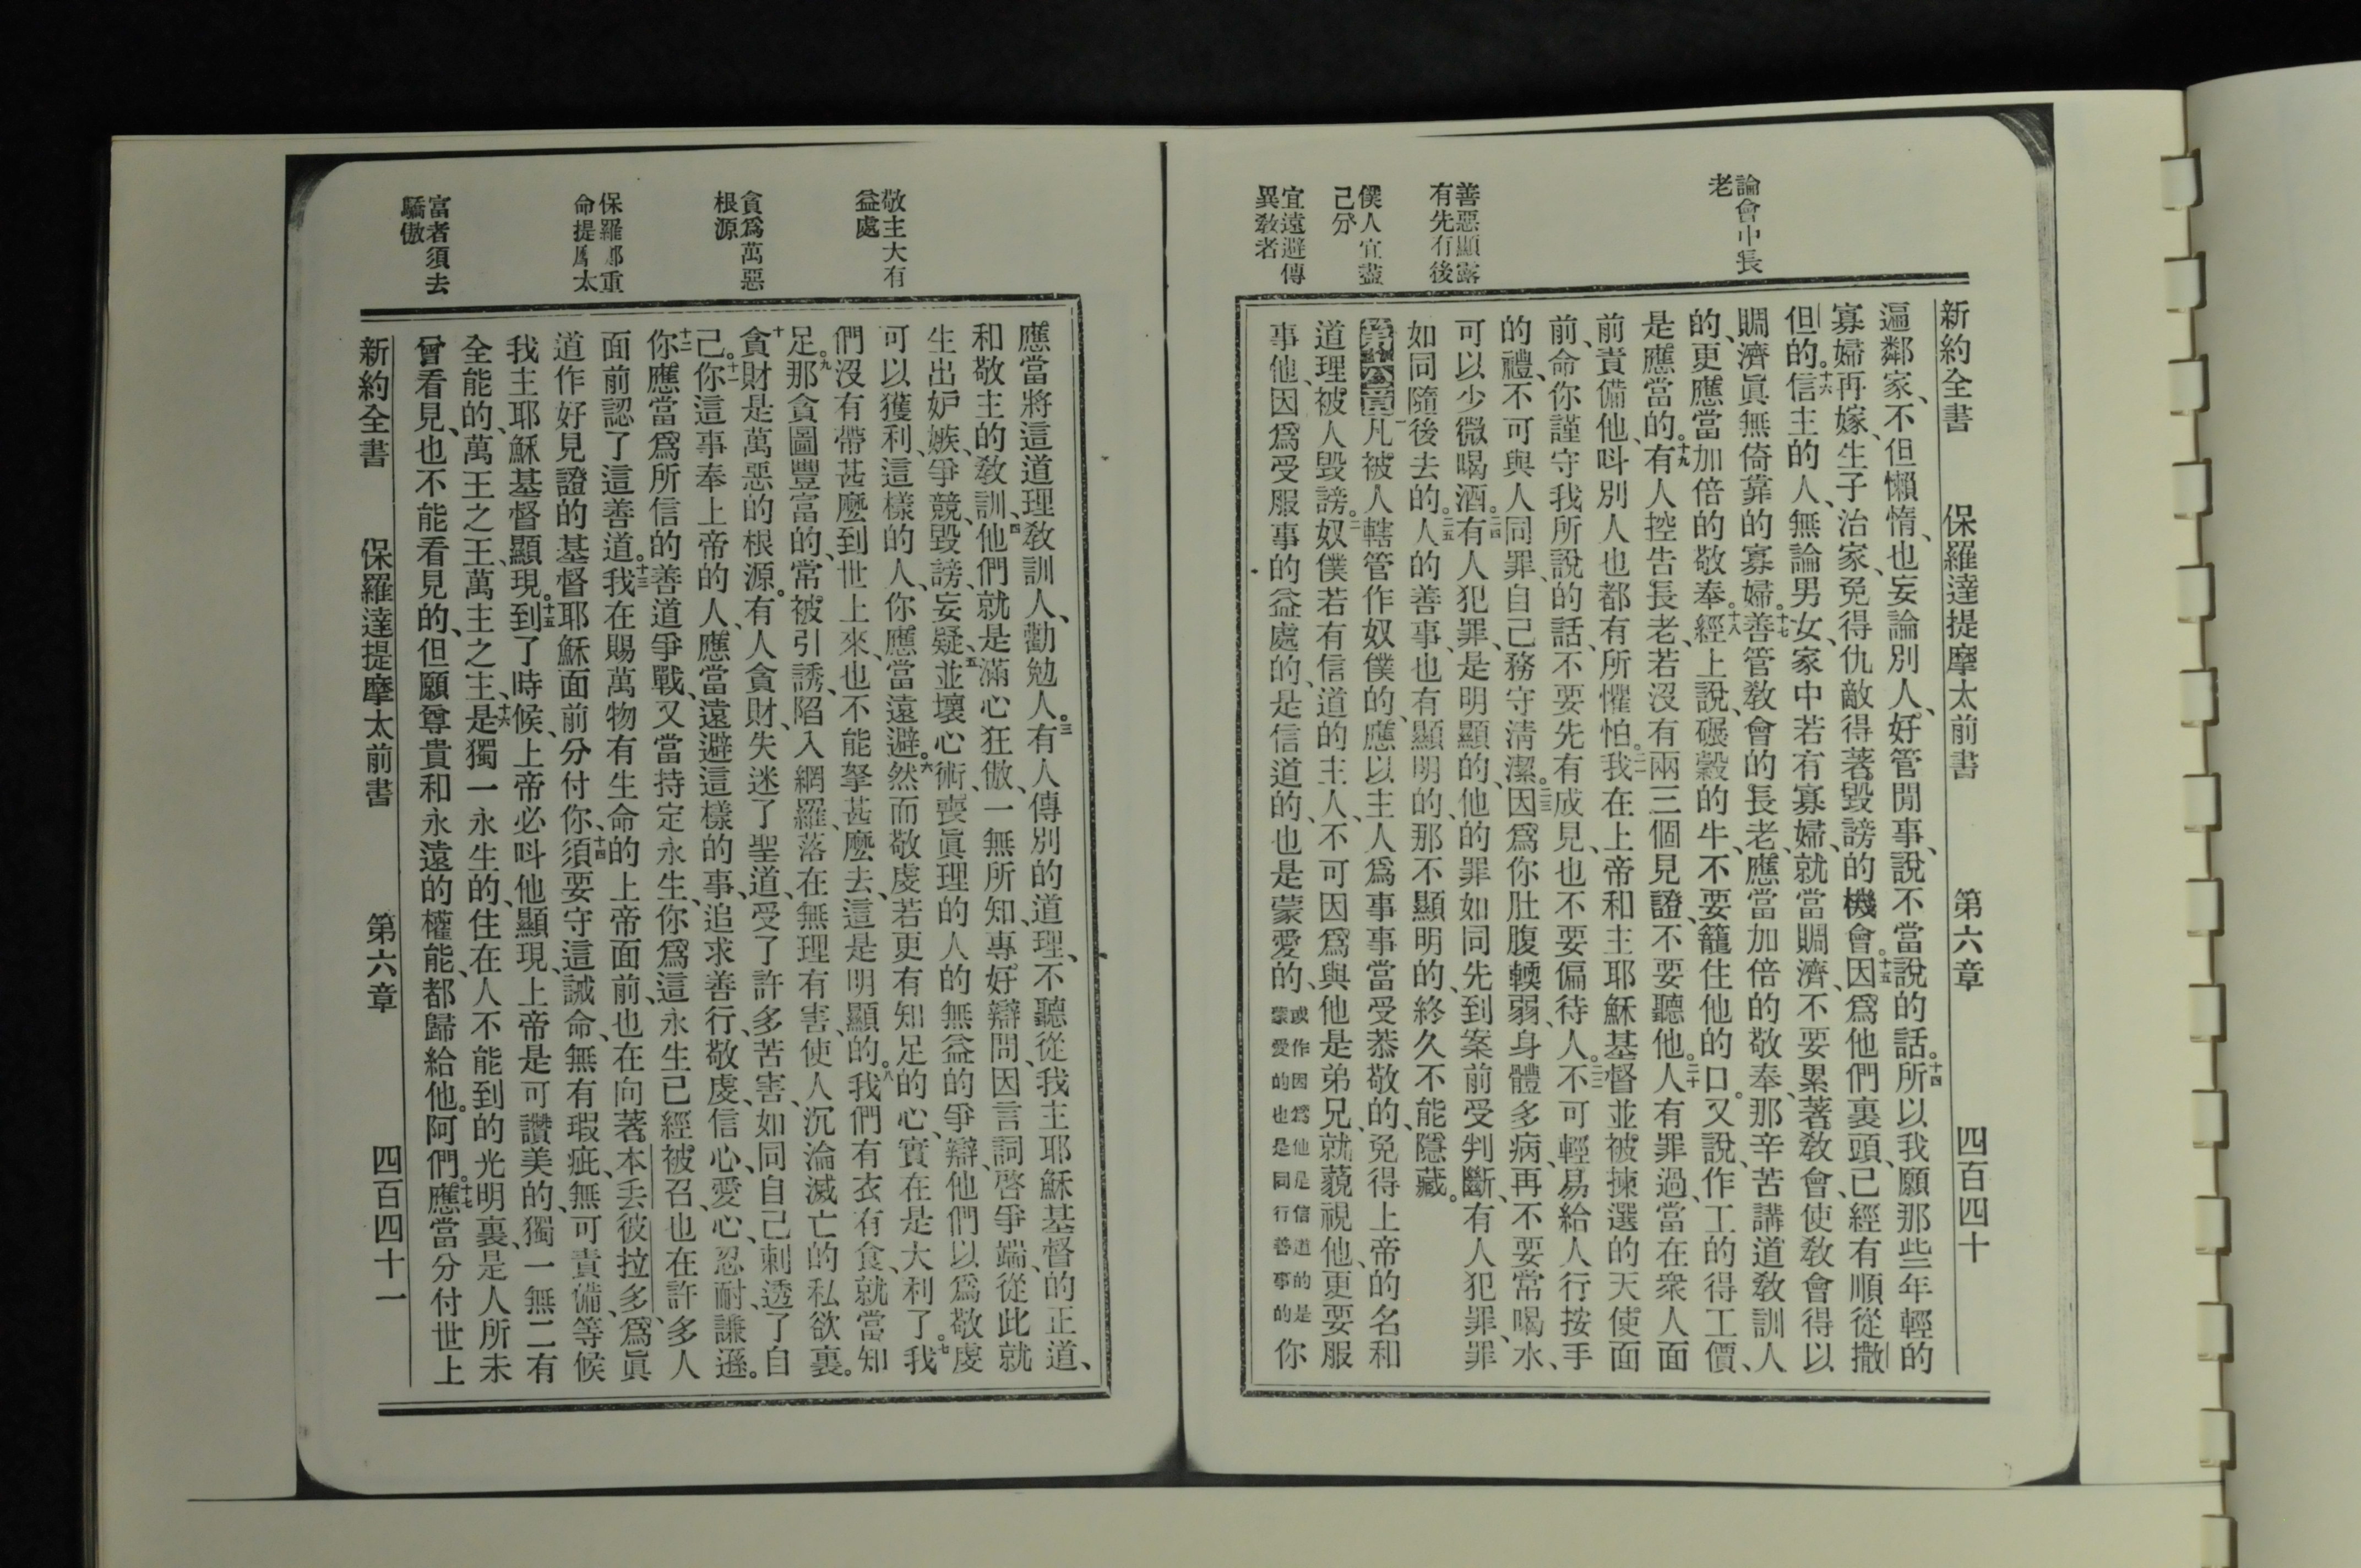 論會中長
老
善惡顯露
有先有後
僕人宜盡
己分
宜遠避傳
異教者
新約全書 保羅達提摩太前書 第六章 四百四十
遍鄰家、不但懶惰、也妄論別人、好管閒事、說不當說的話。十四所以我願那些年輕的
寡婦再嫁、生子治家、免得仇敵得著毀謗的機會。十五因爲他們裏頭、已經有順從撒
但的。十六信主的人、無論男女、家中若有寡婦、就當賙濟、不要累著教會、使教會得以
賙濟眞無倚靠的寡婦。十七善管教會的長老、應當加倍的敬奉、那辛苦講道教訓人
的、更應當加倍的敬奉。十八經上說、碾穀的牛、不要籠住他的口。又說、作工的得工價、
是應當的。十九有人控告長老、若沒有兩三個見證、不要聽他。二十人有罪過、當在衆人面
前責備他、呌別人也都有所懼怕。二一我在上帝和主耶穌基督並被揀選的天使面
前、命你謹守我所說的話、不要先有成見、也不要偏待人。二二不可輕易給人行按手
的禮、不可與人同罪、自己務守清潔。二三因爲你肚腹輭弱、身體多病、再不要常喝水、
可以少微喝酒。二四有人犯罪、是明顯的、他的罪如同先到案前受判斷、有人犯罪、罪
如同隨後去的。二五人的善事、也有顯明的、那不顯明的、終久不能隱藏。
第六章一凡被人轄管作奴僕的、應以主人爲事事當受恭敬的、免得上帝的名和
道理被人毀謗。二奴僕若有信道的主人、不可因爲與他是弟兄、就藐視他、更要服
事他、因爲受服事的益處的、是信道的、也是蒙愛的、或作因爲他是信道的是蒙愛的也是同行善事的你
敬主大有
益處
貪爲萬惡
根源
保羅鄭重
命提摩太
富者須去
驕傲
應當將這道理教訓人、勸勉人。三有人傳別的道理、不聽從我主耶穌基督的正道、
和敬主的教訓、四他們就是滿心狂傲、一無所知、專好辯問、因言詞啓爭端、從此就
生出妒嫉、爭競、毀謗、妄疑、五並壞心術、喪眞理的人的無益的爭辯、他們以爲敬虔
可以獲利、這樣的人、你應當遠避。六然而敬虔若更有知足的心、實在是大利了。七我
們沒有帶甚麼到世上來、也不能拏甚麼去、這是明顯的。八我們有衣有食、就當知
足。九那貪圖豐富的、常被引誘、陷入網羅、落在無理有害、使人沉淪滅亡的私欲裏。
十貪財是萬惡的根源。有人貪財、失迷了聖道、受了許多苦害、如同自己刺透了自
己。十一你這事奉上帝的人、應當遠避這樣的事、追求善行、敬虔、信心、愛心、忍耐、謙遜。
十二你應當爲所信的善道爭戰、又當持定永生、你爲這永生已經被召、也在許多人
面前認了這善道。十三我在賜萬物有生命的上帝面前、也在向著本丢彼拉多、爲眞
道作好見證的基督耶穌面前分付你、十四須要守這誡命、無有瑕疵、無可責備、等候
我主耶穌基督顯現。十五到了時候、上帝必呌他顯現、上帝是可讚美的、獨一無二有
全能的、萬王之王、萬主之主、十六是獨一永生的、住在人不能到的光明裏、是人所未
曾看見、也不能看見的、但願尊貴和永遠的權能、都歸給他。阿們。十七應當分付世上
新約全書 保羅達提摩太前書 第六章 四百四十一